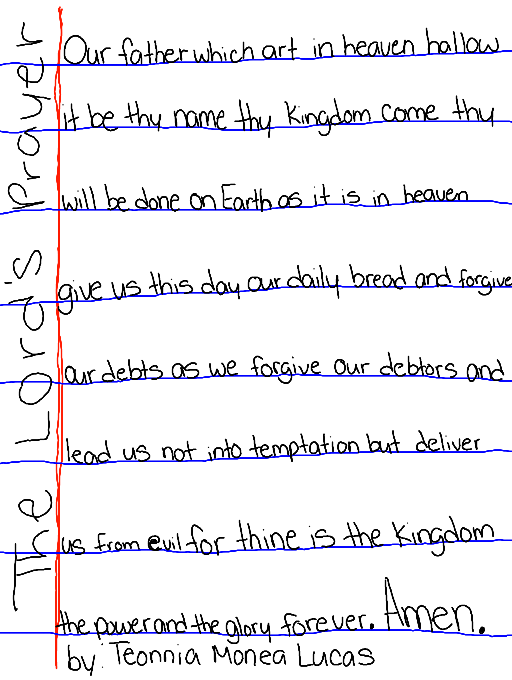 The Lord's Prayer
Our father which art in heaven hallow
it be thy name thy Kingdom come thy
will be done on Earth as it is in heaven
give us this day our daily bread and forgive
our debts as we forgive our debtors and
lead us not into temptation but deliver
us from evil for thine is the Kingdom
the power and the glory forever. Amen.
by: Teonnia Monea Lucas